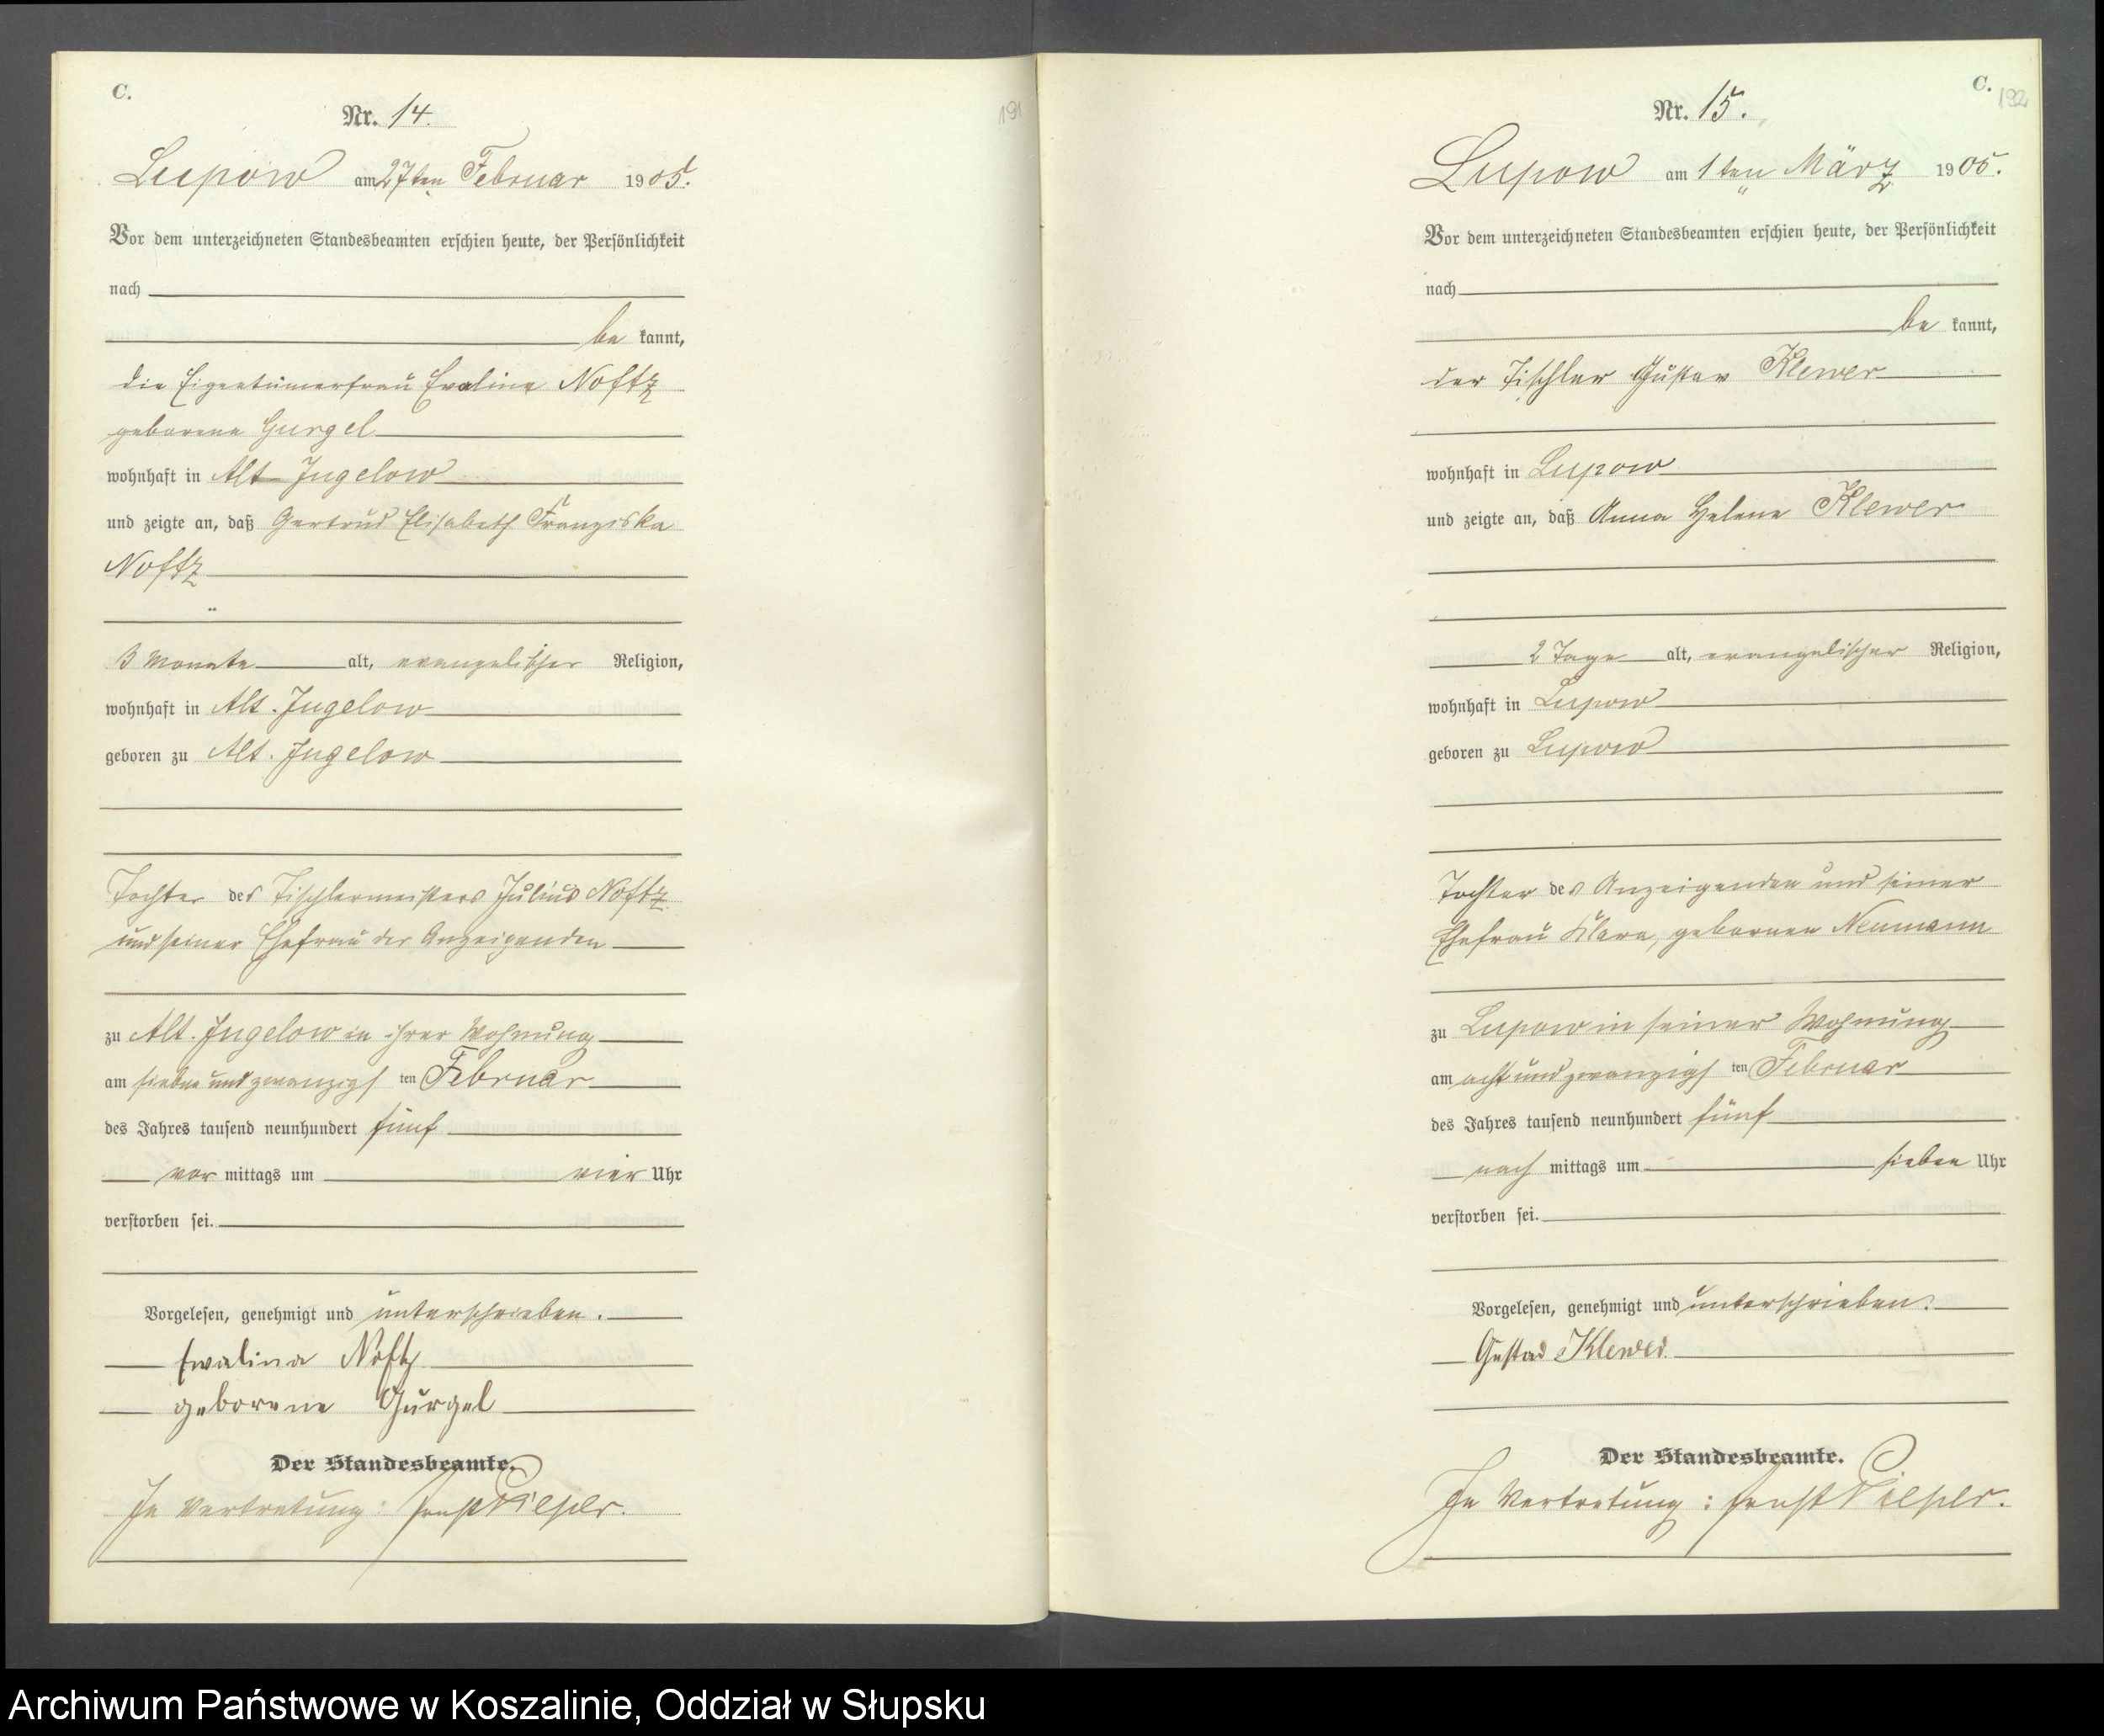 C.
191
Nr. 14.
Lupow am 27ten Februar 1905.
Vor dem unterzeichneten Standesbeamten erschien heute, der Persönlichkeit
nach
be kannt,
die Eigentümerfrau Ewaline Noffz
geborene Gurgel
wohnhaft in Alt-Jugelow
und zeigte an, daß Gertrud Elisabeth Franziska
Noffz
3 Monate alt, evangelischer Religion,
wohnhaft in Alt-Jugelow
geboren zu Alt-Jugelow
Tochter des Tischlermeisters Julius Noffz
und seiner Ehefrau der Anzeigenden
zu Alt-Jugelow in ihrer Wohnung
am sieben und zwanzigsten Februar
des Jahres tausend neunhundert fünf
vor mittags um vier Uhr
verstorben sei.
Vorgelesen, genehmigt und unterschrieben.
Ewalina Noffz
geborene Gurgel
Der Standesbeamte.
In Vertretung: Ernst Piepler.
C.
192
Nr. 15.
Lupow am 1ten März 1905.
Vor dem unterzeichneten Standesbeamten erschien heute, der Persönlichkeit
nach
be kannt,
der Tischler Gustav Klewer
wohnhaft in Lupow
und zeigte an, daß Anna Helene Klewer
2 Tage alt, evangelischer Religion,
wohnhaft in Lupow
geboren zu Lupow
Tochter des Anzeigenden und seiner
Ehefrau Klara, geborenen Neumann
zu Lupow in seiner Wohnung
am acht und zwanzigsten Februar
des Jahres tausend neunhundert fünf
nach mittags um sieben Uhr
verstorben sei.
Vorgelesen, genehmigt und unterschrieben.
Gustav Klewer
Der Standesbeamte.
In Vertretung: Ernst Piepler.
Archiwum Państwowe w Koszalinie, Oddział w Słupsku